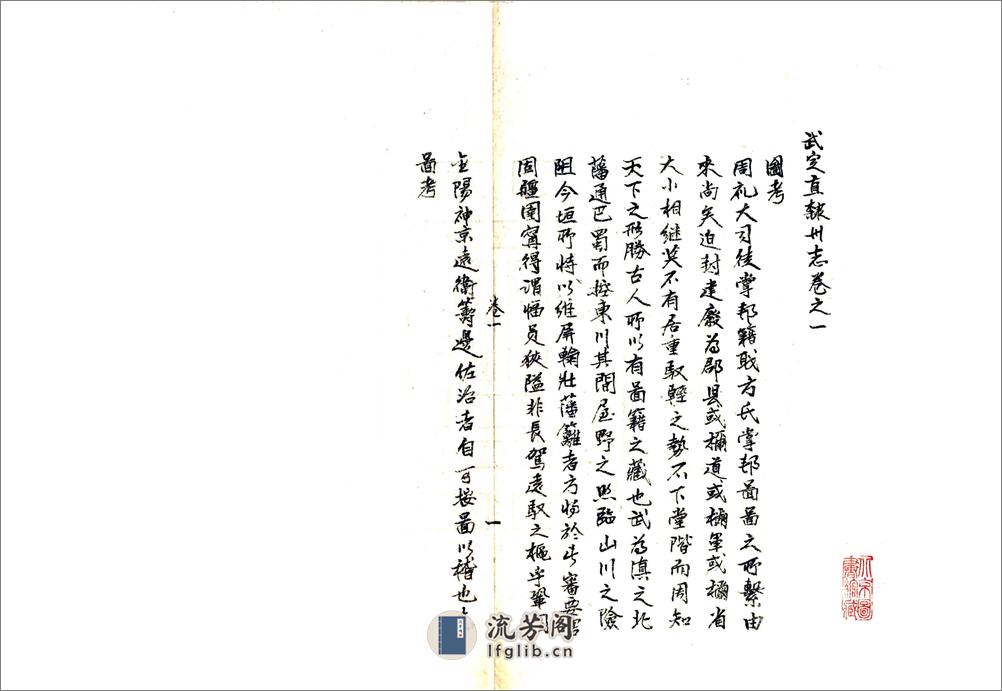 武定直隸州志卷之一
圖考
周礼大司徒掌邦籍職方氏掌邦啚啚之所繫由
來尚矣迨封建廢為郡县或稱道或稱軍或稱省
大小相继莫不有居重馭輕之勢不下堂階而周知
天下之形勝古人所以有啚籍之藏也武為滇之北
藩通巴蜀而控東川其間星野之照臨山川之險
阻今垣所恃以维屏翰壯藩籬者方将於此審要
固疆圉寕得谓幅员狹隘非長駕遠馭之樞乎鞏
金陽神京遠衛籌邊佐治者自可按啚以稽也
啚考
卷一
一
流芳阁
lfglib.cn